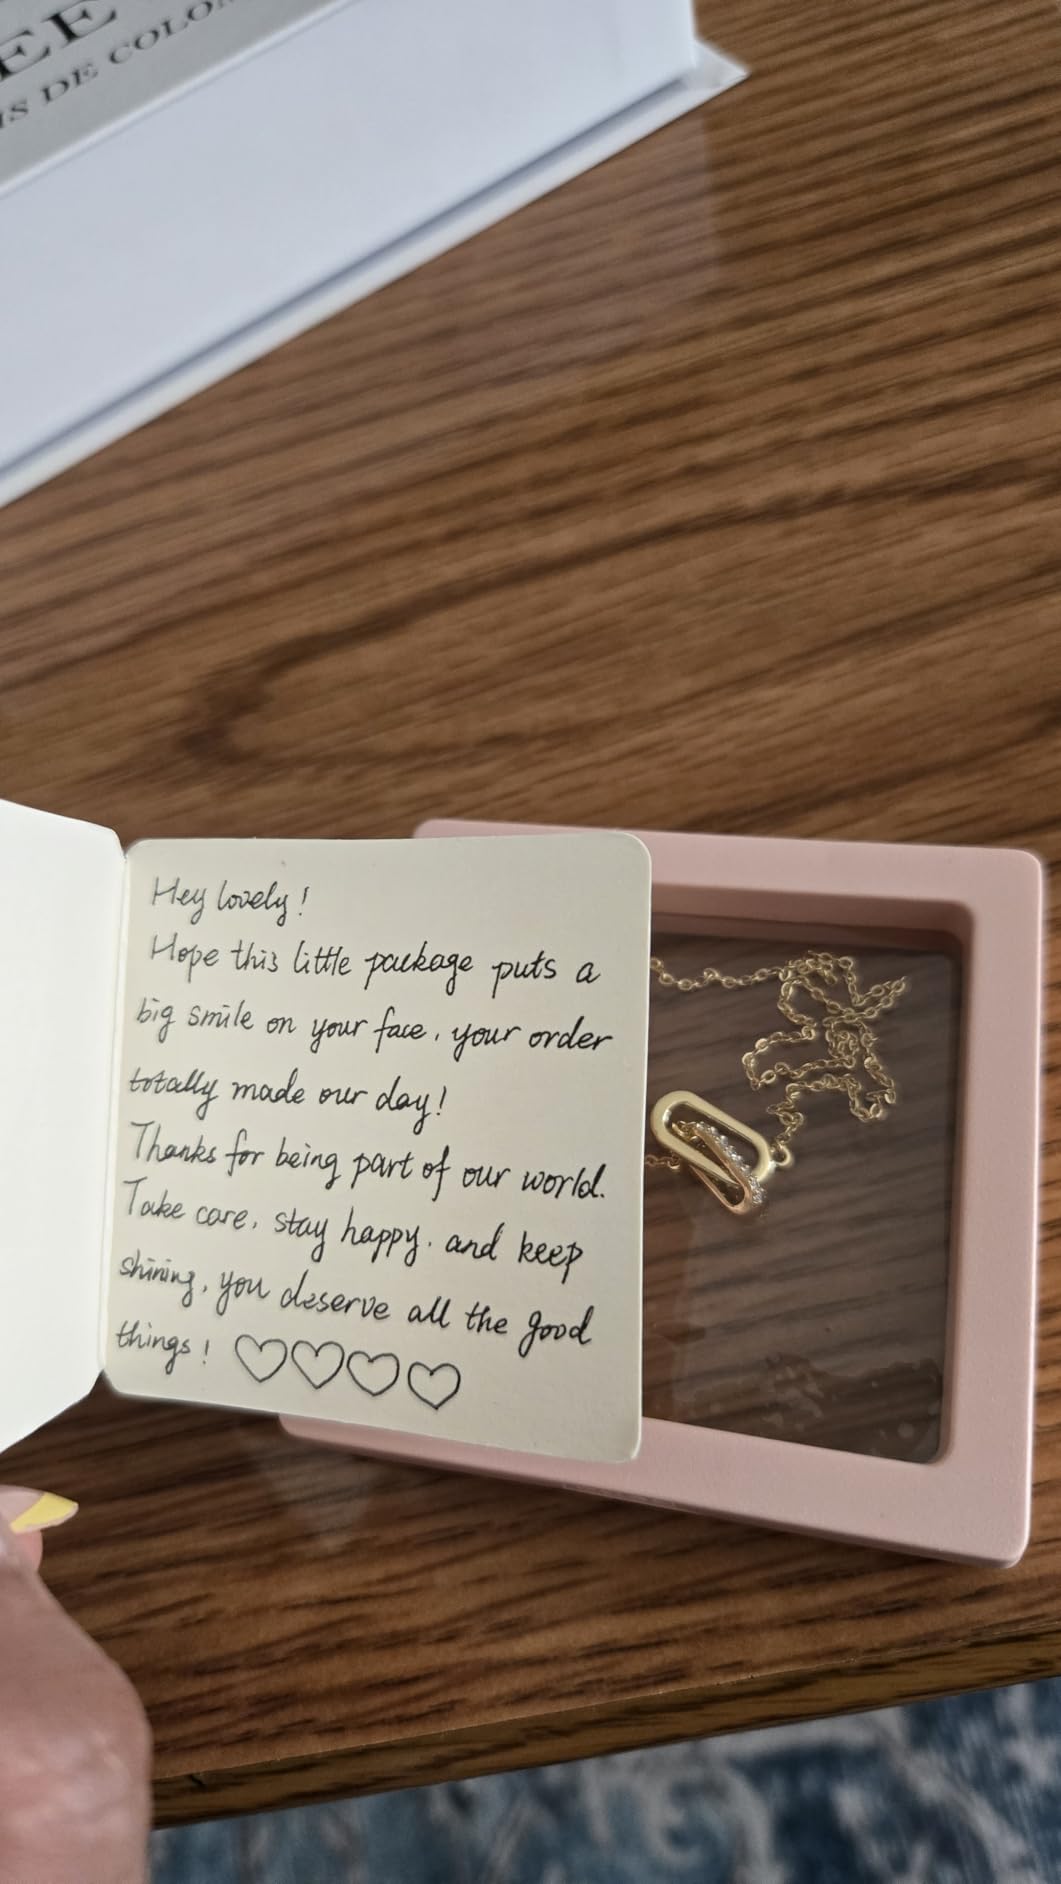 EE
IS DE COLOM
Hey lovely!
Hope this little package puts a
big smile on your face, your order
totally made our day!
Thanks for being part of our world.
Take care, stay happy, and keep
shining, you deserve all the good
things! ♡♡♡♡